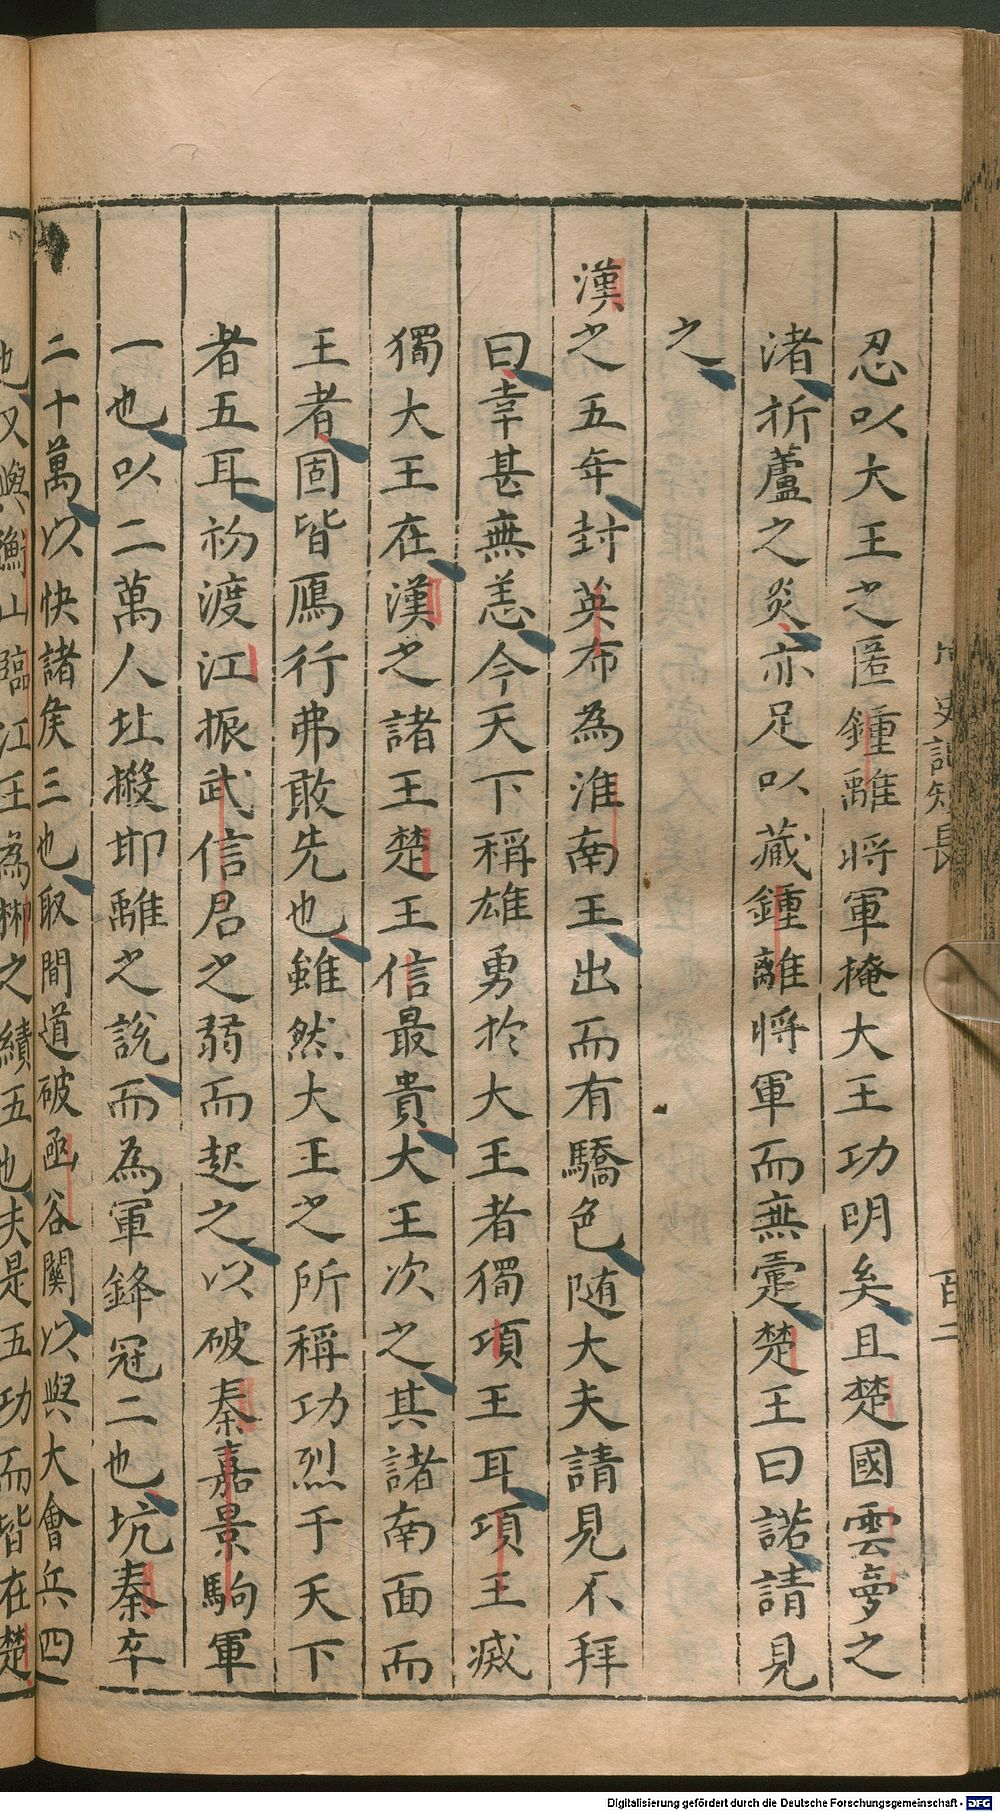 忍以大王之匿鍾離將軍掩大王功明矣且楚國雲夢之
渚折蘆之炎亦足以藏鍾離將軍而無霣楚王曰諾請見
之
漢之五年封英布為淮南王出而有驕色随大夫請見不拜
曰幸甚無恙今天下稱雄勇於大王者獨項王耳項王滅
獨大王在漢之諸王楚王信最貴大王次之其諸南面而
王者固皆鴈行弗敢先也雖然大王之所稱功烈于天下
者五耳初渡江振武信君之弱而起之以破秦嘉景駒軍
一也以二萬人壯摋耶離之說而為軍鋒冠二也坑秦卒
二十萬以快諸矦三也取間道破函谷關以與大會兵四
也又與衡山臨江王為郴之績五也夫是五功而皆在楚
史記短長
百二
Digitalisierung gefördert durch die Deutsche Forschungsgemeinschaft - DFG